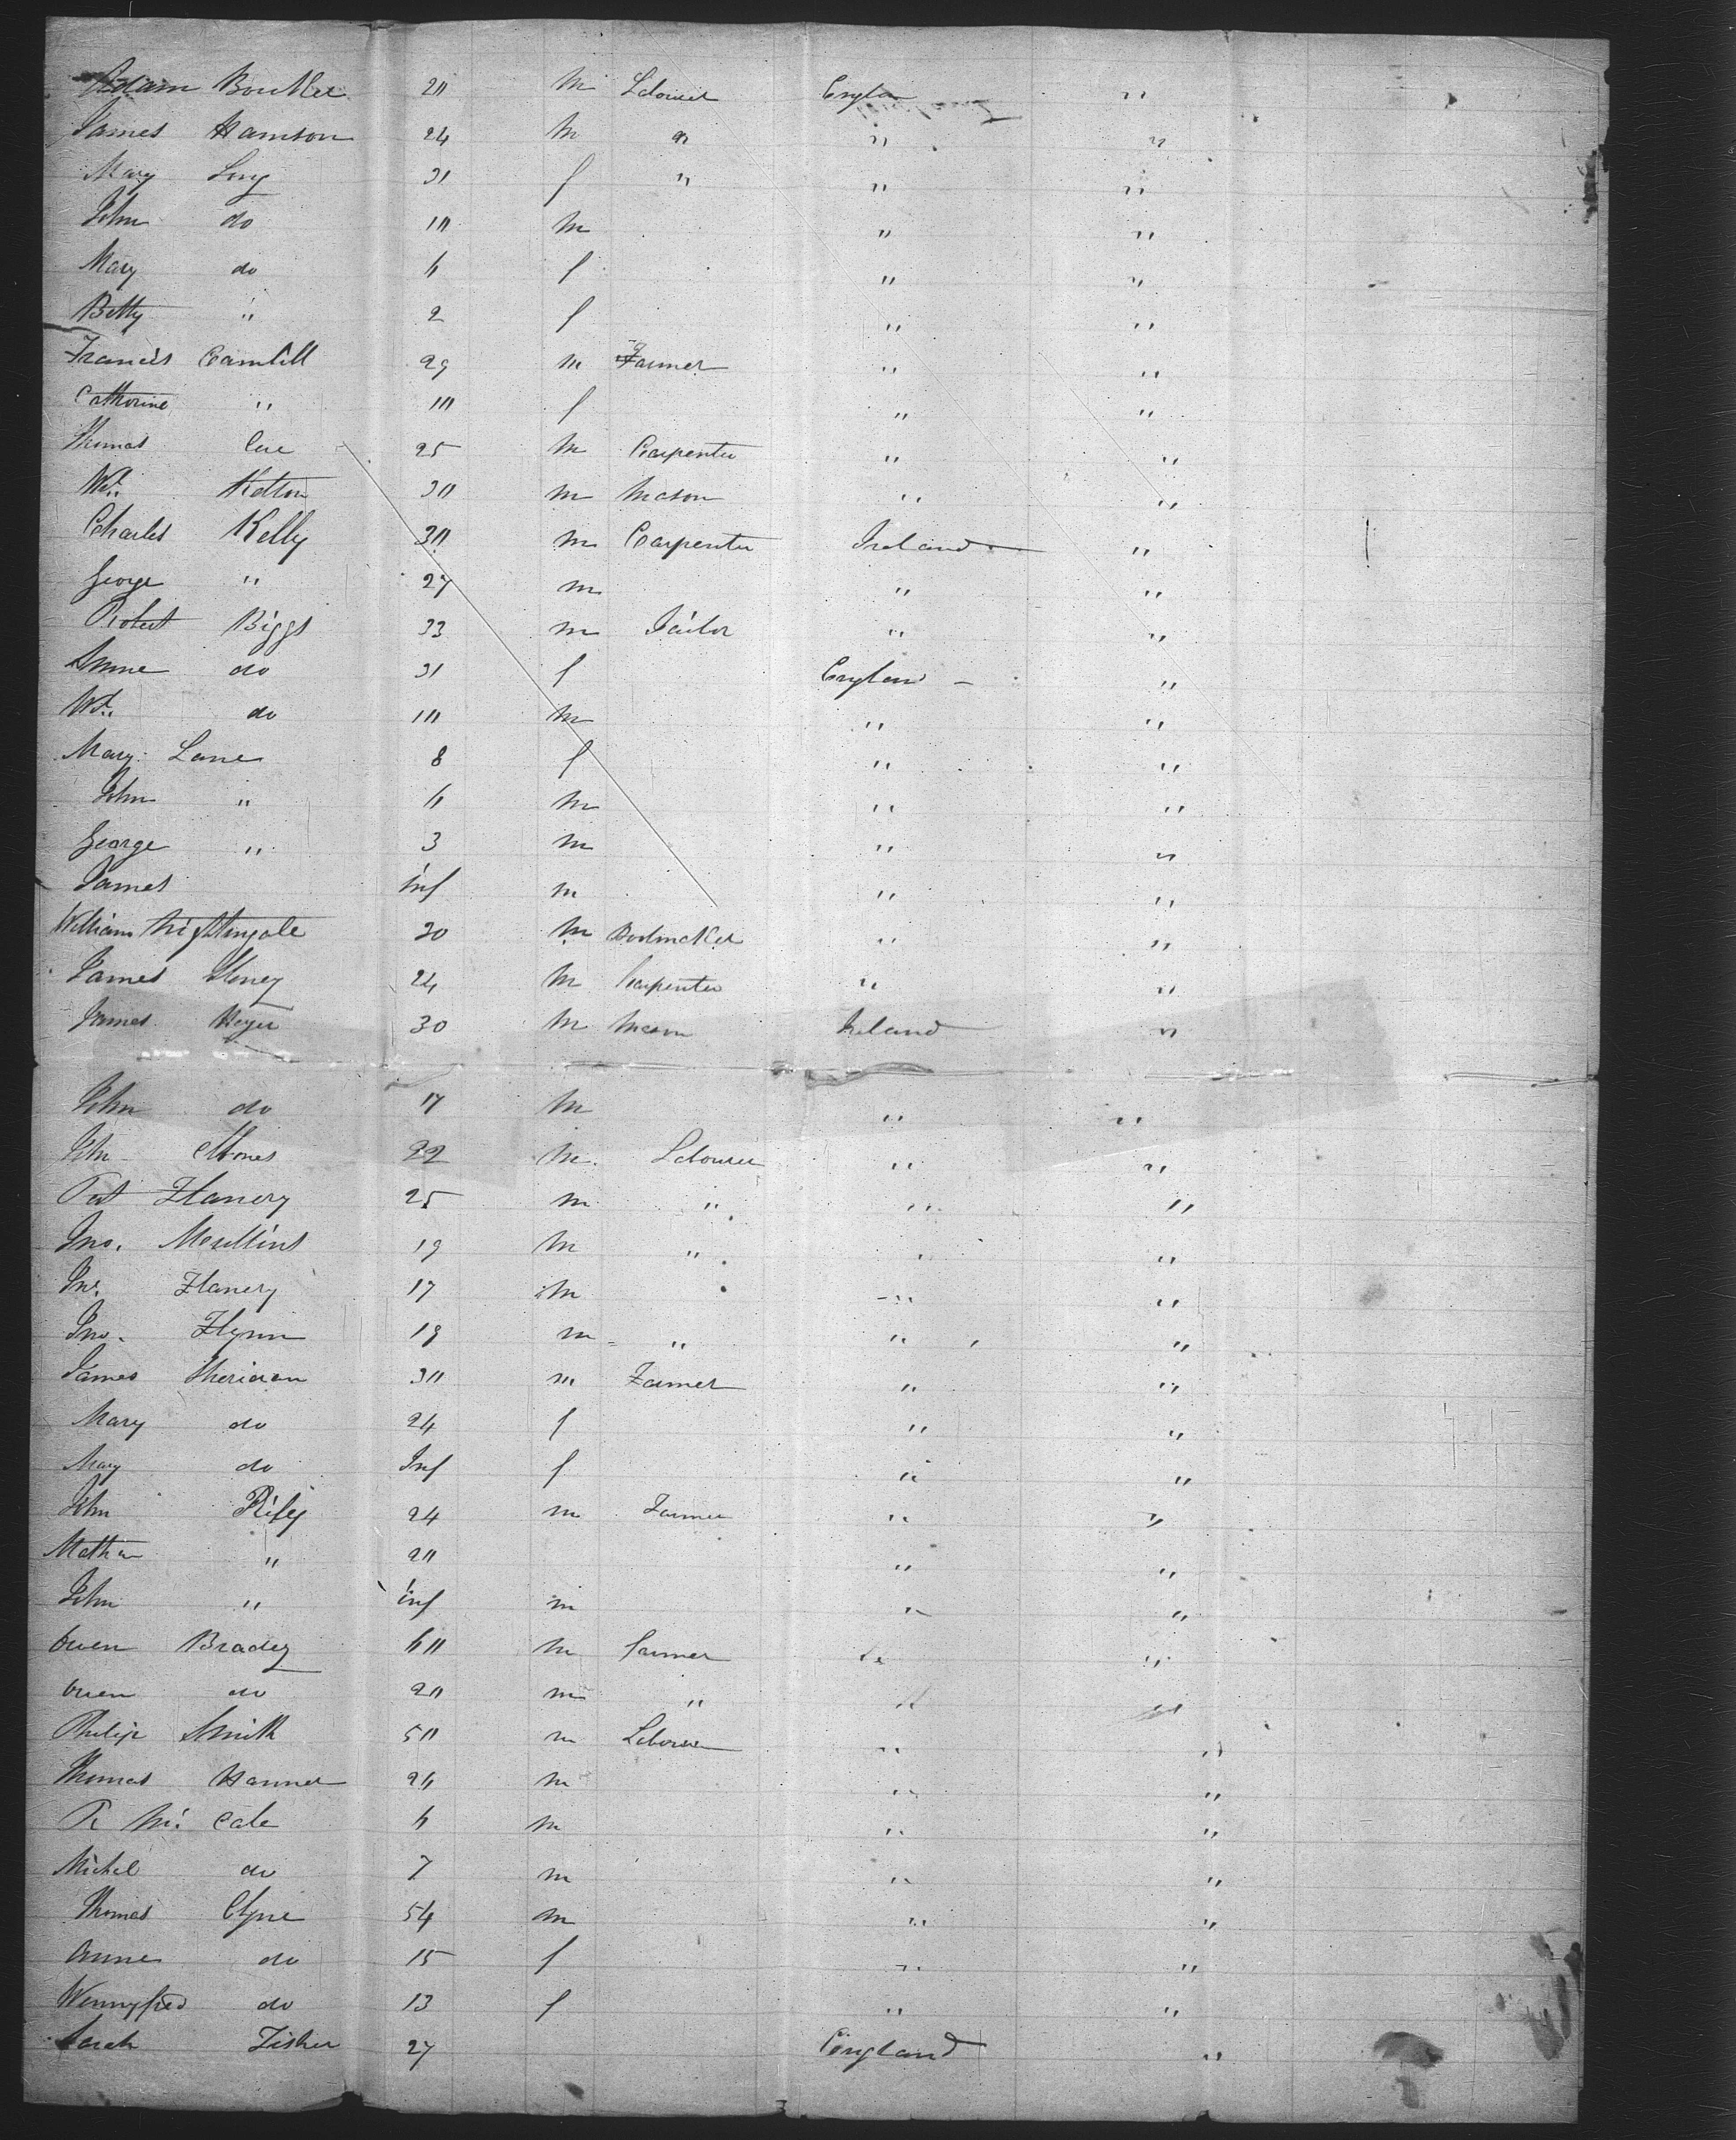 Adam Boulter 20 m Labourer Englan " 
James Hamson 24 m " " "
Mary Long 31 f " " "
John do 10 m " "
Mary do 6 f " "
Betty " 2 f " "
Francis Camhill 29 m Farmer " "
Catherine " 10 f " "
Thomas Cue 25 m Carpenter " "
Wm Kelton 30 m Mason " "
Charles Kelly 30 m Carpenter Ireland "
George " 27 m " "
Robert Biggs 33 m Tailor " "
Anne do 31 f England "
Wm do 10 m " "
Mary Lane 8 f " "
John " 6 m " "
George " 3 m " "
James inf m " "
William Nightingale 30 m Bootmaker " "
James Stoney 24 m Carpenter " "
James 30 m Mason Ireland "
John do 17 m " "
Jhn 22 m Labourer " "
Pat Flanery 25 m " " "
Jno. 19 m " " "
Jno. Flanery 17 m " "
Jno. Flynn 19 m " " "
James Sheridan 30 m Farmer " "
Mary do 24 f " "
Mary do Inf f " "
John Rily 24 m Farmer " "
" 20 " "
John " inf m " "
Owen Bradey 60 m farmer " "
Owen do 20 m " " "
Philip Smith 50 m Labourer " "
Thomas Hanner 26 m " "
Mc Cale 6 m " "
Michel do 7 m " "
Thomas Clyne 54 m " "
Anne do 15 f " "
Wennyfred do 13 f " "
Sarah Fisher 27 England "